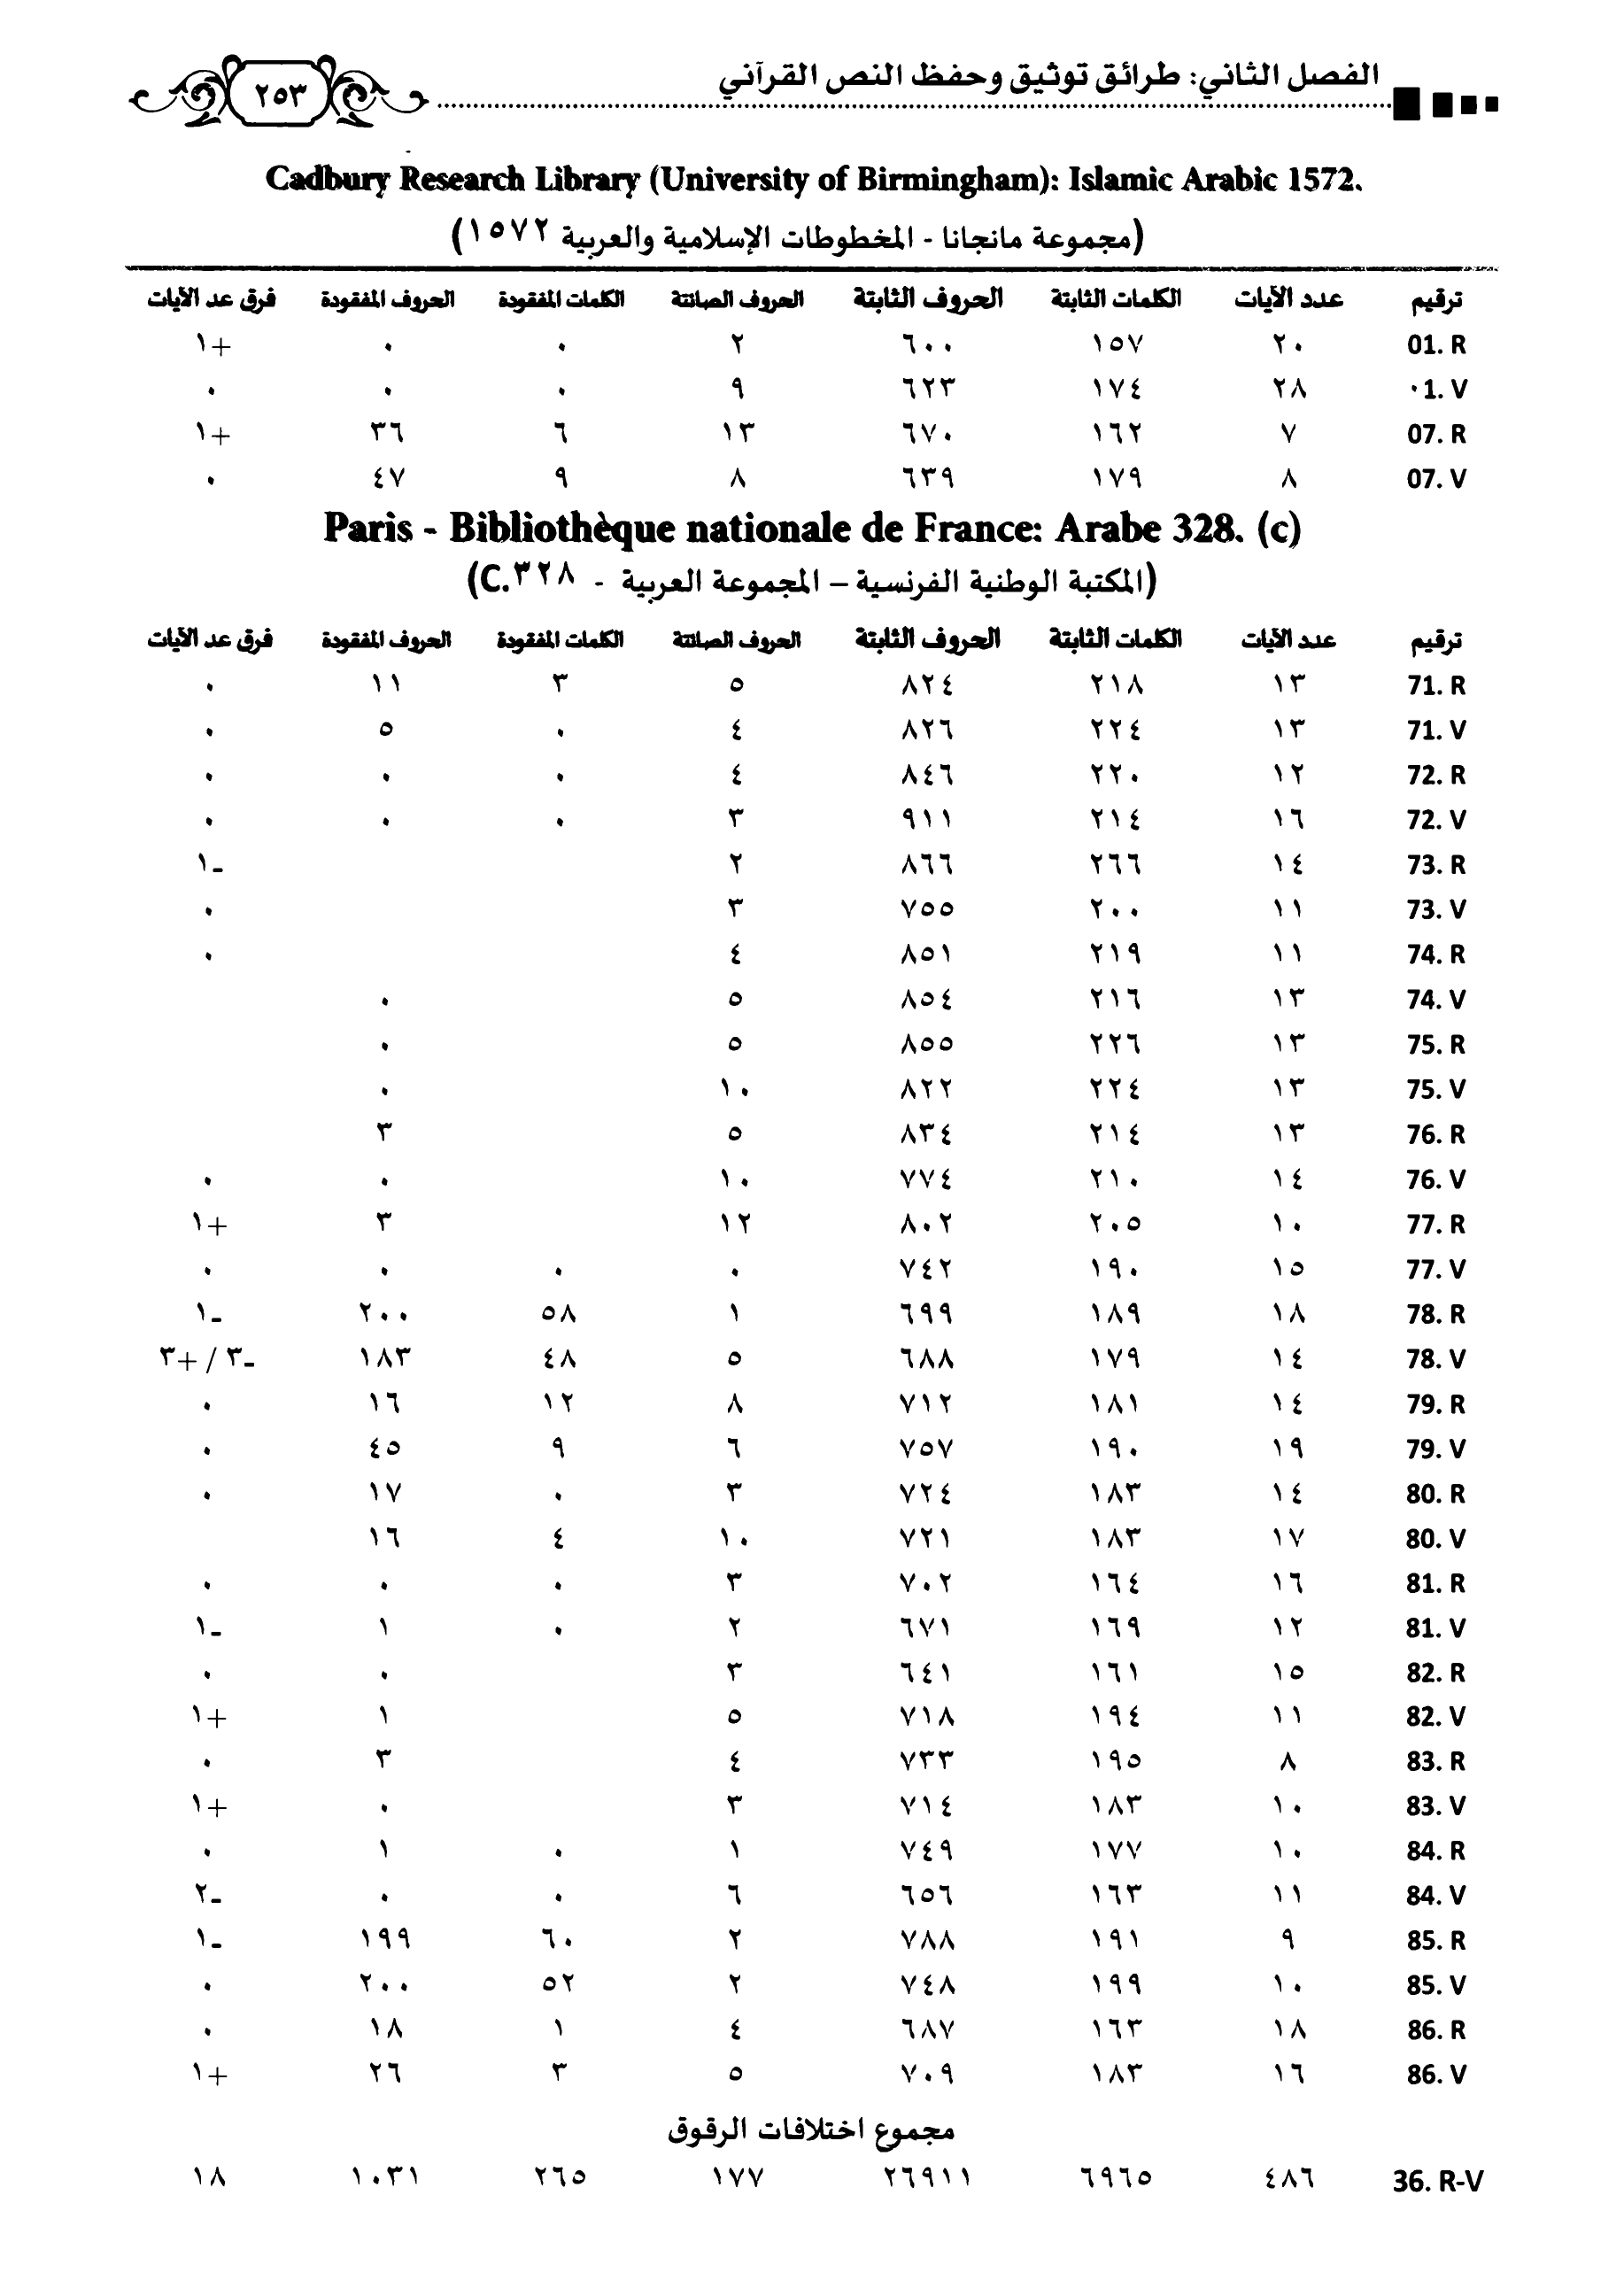 الفصل الثاني: طرائق توثيق وحفظ النص القرآني ٢٥٣
Cadbury Research Library (University of Birmingham): Islamic Arabic 1572.
(مجموعة مانجانا - المخطوطات الإسلامية والعربية ١٥٧٢)
ترقيم عدد الآيات الكلمات الثابتة الحروف الثابتة الحروف الصائتة الكلمات المفقودة الحروف المفقودة فرق عد الآيات
01. R ٢٠ ١٥٧ ٦٠٠ ٢ ٠ ٠ +١
٠1. V ٢٨ ١٧٤ ٦٢٣ ٩ ٠ ٠ ٠
07. R ٧ ١٦٢ ٦٧٠ ١٣ ٦ ٣٦ +١
07. V ٨ ١٧٩ ٦٣٩ ٨ ٩ ٤٧ ٠
Paris - Bibliothèque nationale de France: Arabe 328. (c)
(المكتبة الوطنية الفرنسية – المجموعة العربية - ٣٢٨.C)
ترقيم عدد الآيات الكلمات الثابتة الحروف الثابتة الحروف الصائتة الكلمات المفقودة الحروف المفقودة فرق عد الآيات
71. R ١٣ ٢١٨ ٨٢٤ ٥ ٣ ١١ ٠
71. V ١٣ ٢٢٤ ٨٢٦ ٤ ٠ ٥ ٠
72. R ١٢ ٢٢٠ ٨٤٦ ٤ ٠ ٠ ٠
72. V ١٦ ٢١٤ ٩١١ ٣ ٠ ٠ ٠
73. R ١٤ ٢٦٦ ٨٦٦ ٢ -١
73. V ١١ ٢٠٠ ٧٥٥ ٣ ٠
74. R ١١ ٢١٩ ٨٥١ ٤ ٠
74. V ١٣ ٢١٦ ٨٥٤ ٥ ٠
75. R ١٣ ٢٢٦ ٨٥٥ ٥ ٠
75. V ١٣ ٢٢٤ ٨٢٢ ١٠ ٠
76. R ١٣ ٢١٤ ٨٣٤ ٥ ٣
76. V ١٤ ٢١٠ ٧٧٤ ١٠ ٠ ٠
77. R ١٠ ٢٠٥ ٨٠٢ ١٢ ٣ +١
77. V ١٥ ١٩٠ ٧٤٢ ٠ ٠ ٠ ٠
78. R ١٨ ١٨٩ ٦٩٩ ١ ٥٨ ٢٠٠ -١
78. V ١٤ ١٧٩ ٦٨٨ ٥ ٤٨ ١٨٣ -٣ / +٣
79. R ١٤ ١٨١ ٧١٢ ٨ ١٢ ١٦ ٠
79. V ١٩ ١٩٠ ٧٥٧ ٦ ٩ ٤٥ ٠
80. R ١٤ ١٨٣ ٧٢٤ ٣ ٠ ١٧ ٠
80. V ١٧ ١٨٣ ٧٢١ ١٠ ٤ ١٦
81. R ١٦ ١٦٤ ٧٠٢ ٣ ٠ ٠ ٠
81. V ١٢ ١٦٩ ٦٧١ ٢ ٠ ١ -١
82. R ١٥ ١٦١ ٦٤١ ٣ ٠ ٠
82. V ١١ ١٩٤ ٧١٨ ٥ ١ +١
83. R ٨ ١٩٥ ٧٣٣ ٤ ٣ ٠
83. V ١٠ ١٨٣ ٧١٤ ٣ ٠ +١
84. R ١٠ ١٧٧ ٧٤٩ ١ ٠ ١ ٠
84. V ١١ ١٦٣ ٦٥٦ ٦ ٠ ٠ -٢
85. R ٩ ١٩١ ٧٨٨ ٢ ٦٠ ١٩٩ -١
85. V ١٠ ١٩٩ ٧٤٨ ٢ ٥٢ ٢٠٠ ٠
86. R ١٨ ١٦٣ ٦٨٧ ٤ ١ ١٨ ٠
86. V ١٦ ١٨٣ ٧٠٩ ٥ ٣ ٢٦ +١
مجموع اختلافات الرقوق
36. R-V ٤٨٦ ٦٩٦٥ ٢٦٩١١ ١٧٧ ٢٦٥ ١٠٣١ ١٨